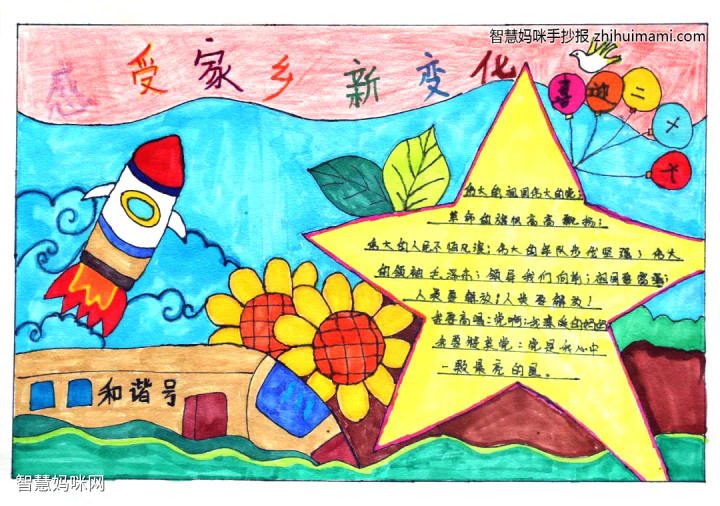 智慧妈咪手抄报 zhihuimami.com
感受家乡新变化
喜迎二十大
伟大的祖国伟大的党；
革命的旗帜高高飘扬；
伟大的人民不怕风浪；伟大的军队坚强；伟大
的领袖毛泽东；领导我们向前；祖国要富强；
人类要解放！人类要解放！
我要高唱：党啊；我亲爱的妈妈
我要赞美党：党是我心中
一颗最亮的星。
和谐号
智慧妈咪网